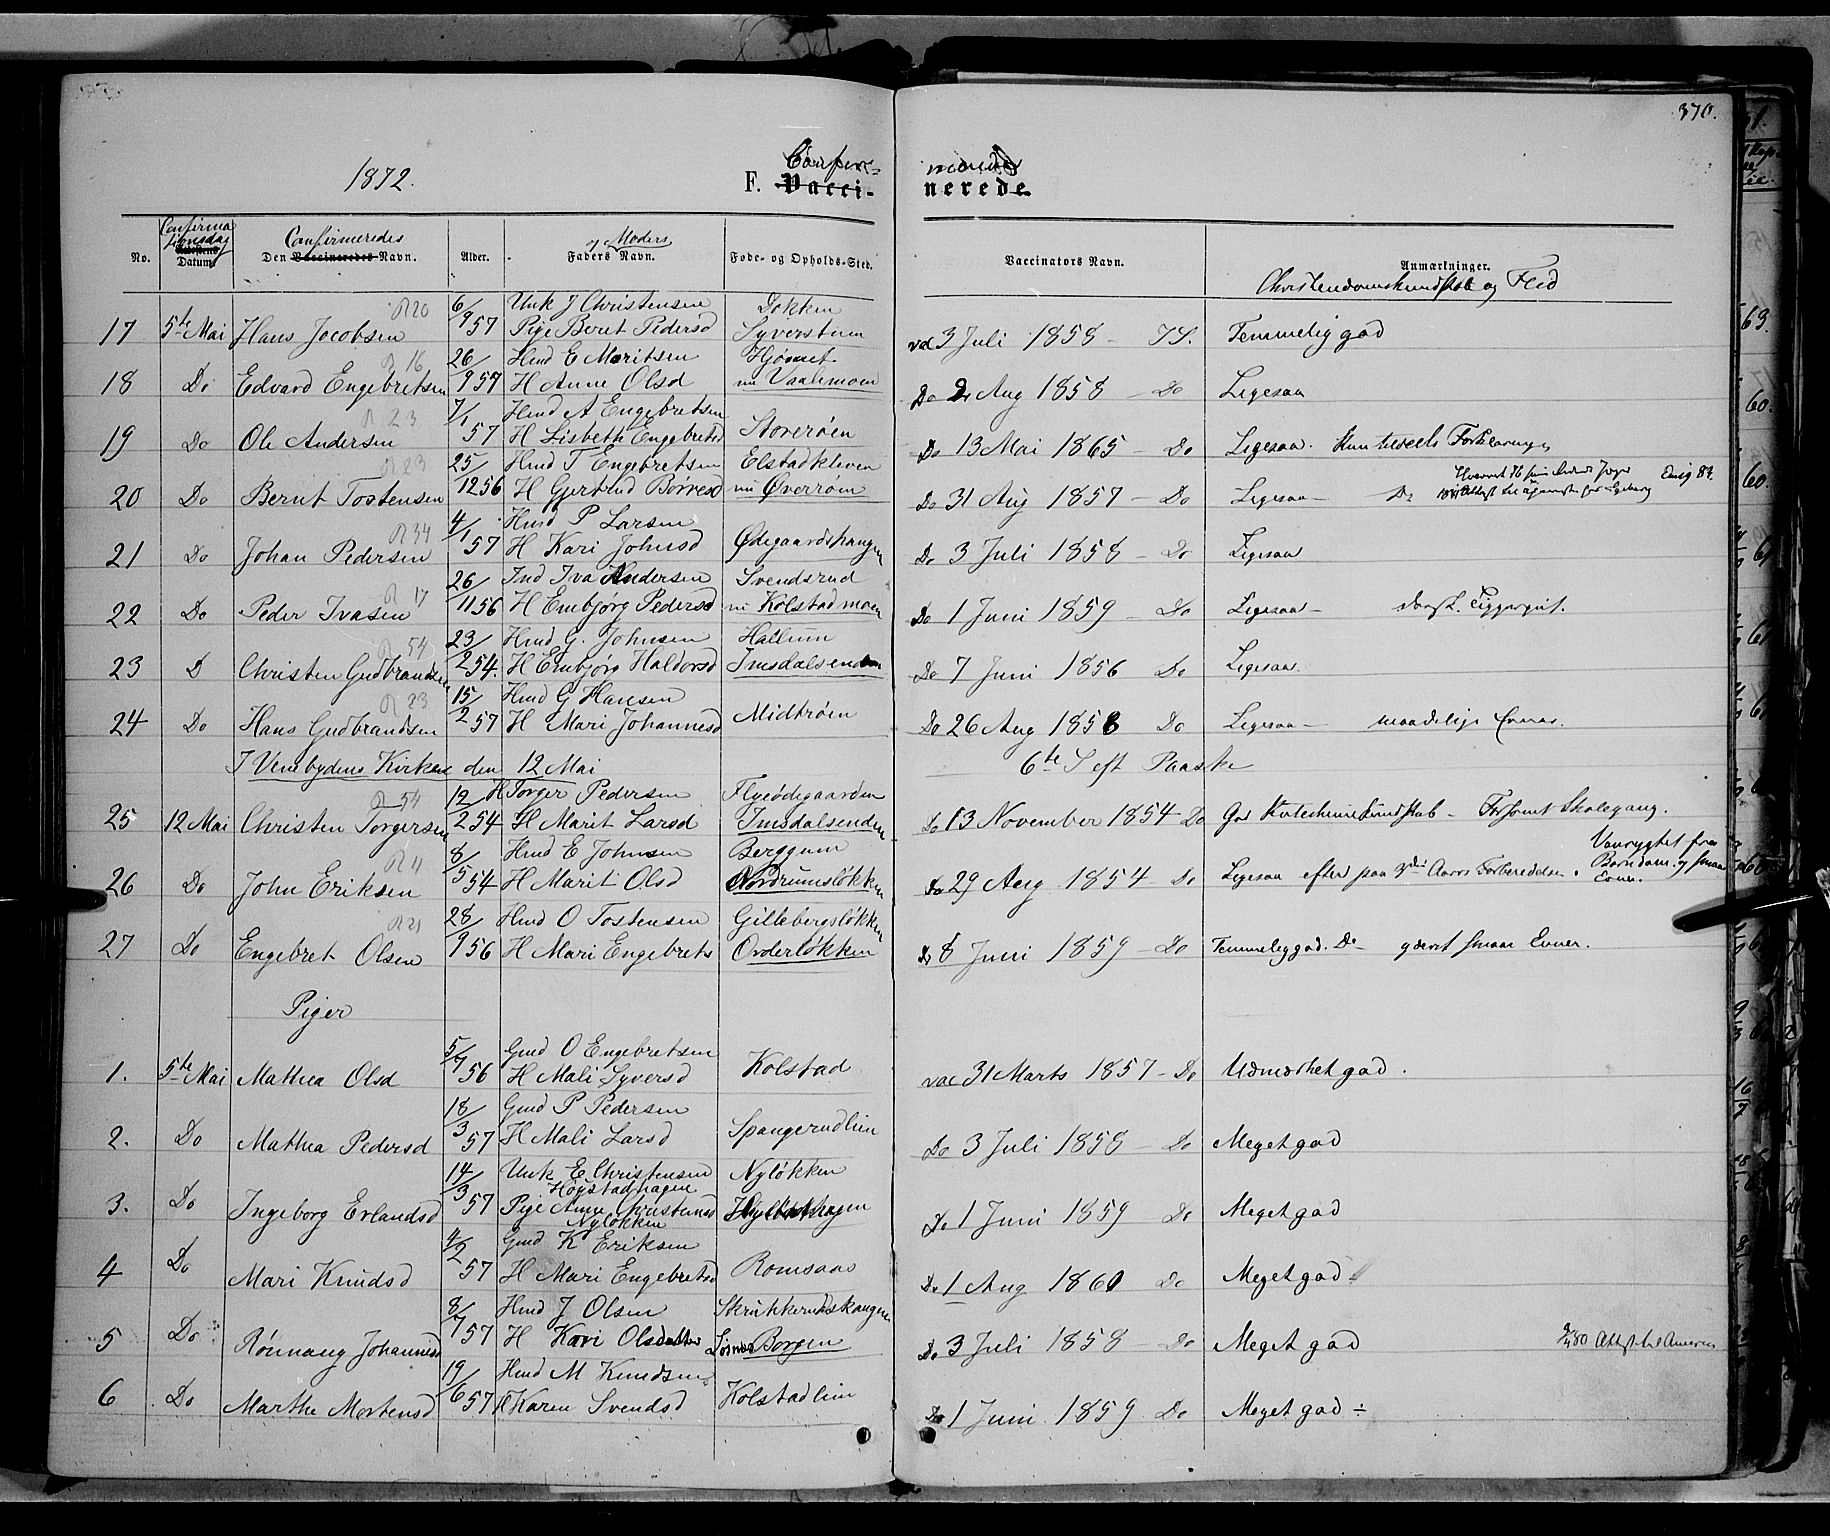 370.
1872.
F. Vacci-
nerede
Confirma
tionsdag
Datum.
No.
Confirmeredes
Den Vaccineredes Navn.
Alder.
Moders
Faders Navn.
Føde- og Opholds-Sted.
Vaccinators Navn.
Anmærkninger.
Christendomskundskab og Flid
17 5te Mai Hans Jacobsen 6/9 57 Unk J Christensen Dokken
Pige Berit Pedersd Syverstuen vac 3 Juli 1858 Temmelig god
18 Do Edvard Engebretsen 26/9 57 Hmd E Moritsen
H Anne Olsd nu Vaalemoen Do 2 Aug 1858 Do Ligesaa
19 Do Ole Andersen 7/1 57 Hmd A Engebretsen
H Lisbeth Engebretsd Storerøen Do 13 Mai 1865 Do Ligesaa.
20 Do Bernt Tostensen 25/12 56 Hmd T Engebretsen Elstadkleven
H Gjertrud Børresd nu Øverrøen Do 31 Aug 1857 Do Ligesaa Do
21 Do Johan Pedersen 4/1 57 Hmd P Larsen
H Kari Johnsd Ødegaardshaugen Do 3 Juli 1858 Do Ligesaa
22 Do Peder Ivasen 26/11 56 Ind Iva Andersen Svendsrud
H Embjørg Pedersd nu Kolstadmoen Do 1 Juni 1859 Do Ligesaa
23 D Christen Gudbrandsen 23/2 54. Hmd G. Johnsen Hallum
H Embjørg Haldorsd Imsdalsenden Do 7 Juni 1856 Do Ligesaa.
24 Do Hans Gudbrandsen 15/2 57 Hmd G Hansen
H Mari Johannesd Midtrøen Do 26 Aug 1858 Do Ligesaa maadelige Evner.
I Venebydens Kirke den 12 Mai 6te S eft Paaske
25 12 Mai Christen Torgersen 12/2 54 H Torger Pedersen Flyeødegaarden
H Marit Larsd Imsdalsenden Do 13 November 1854 Do God Katechismikundskab - Forsømt Skolegang.
26 Do John Eriksen 8/5 54 Hmd E Johnsen Berggum
H Marit Olsd Nordrumsløkken Do 29 Aug 1854 Do Ligesaa efter paa 3die Aars Forberedelse. Vanrygtet fra Barndom og smaa Evner.
27 Do Engebret Olsen 28/9 56 Hmd O Tostensen Gillebergsløkken
H Mari Engebrets Do 8 Juni 1859 Do Temmelig god. Do gdærit smaa Evner.
Piger
1. 5te Mai Mathea Olsd 5/7 56 Gmd O Engebretsen
H Mali Syversd Kolstad vac 31 Marts 1857 Do Udmærket god.
2. Do Mathea Pedersd 18/3 57 Gmd P Pedersen
H Mali Larsd Spangerudlien Do 3 Juli 1858 Do Meget god
3. Do Ingeborg Erlandsd 14/3 57 Unk E Christensen Nyløkken
Høystadhagen
Pige Anne Christensd
Nyløkken Do 1 Juni 1859 Do Meget god
4 Do Mari Knudsd 4/2 57 Gmd K Eriksen
H Mari Engebretsd Romsaas Do 1 Aug 1860 Do Meget god
5 Do Rønnaug Johannesd 8/7 57 Hmd J Olsen Skrukkerudshaugen
H Kari Olsdatter Losnes Borgen Do 3 Juli 1858 Do Meget god
6 Do Marthe Mortensd 19/6 57 Hmd M Knudsen
H Karen Svendsd Kolstadlien Do 1 Juni 1859 Do Meget god